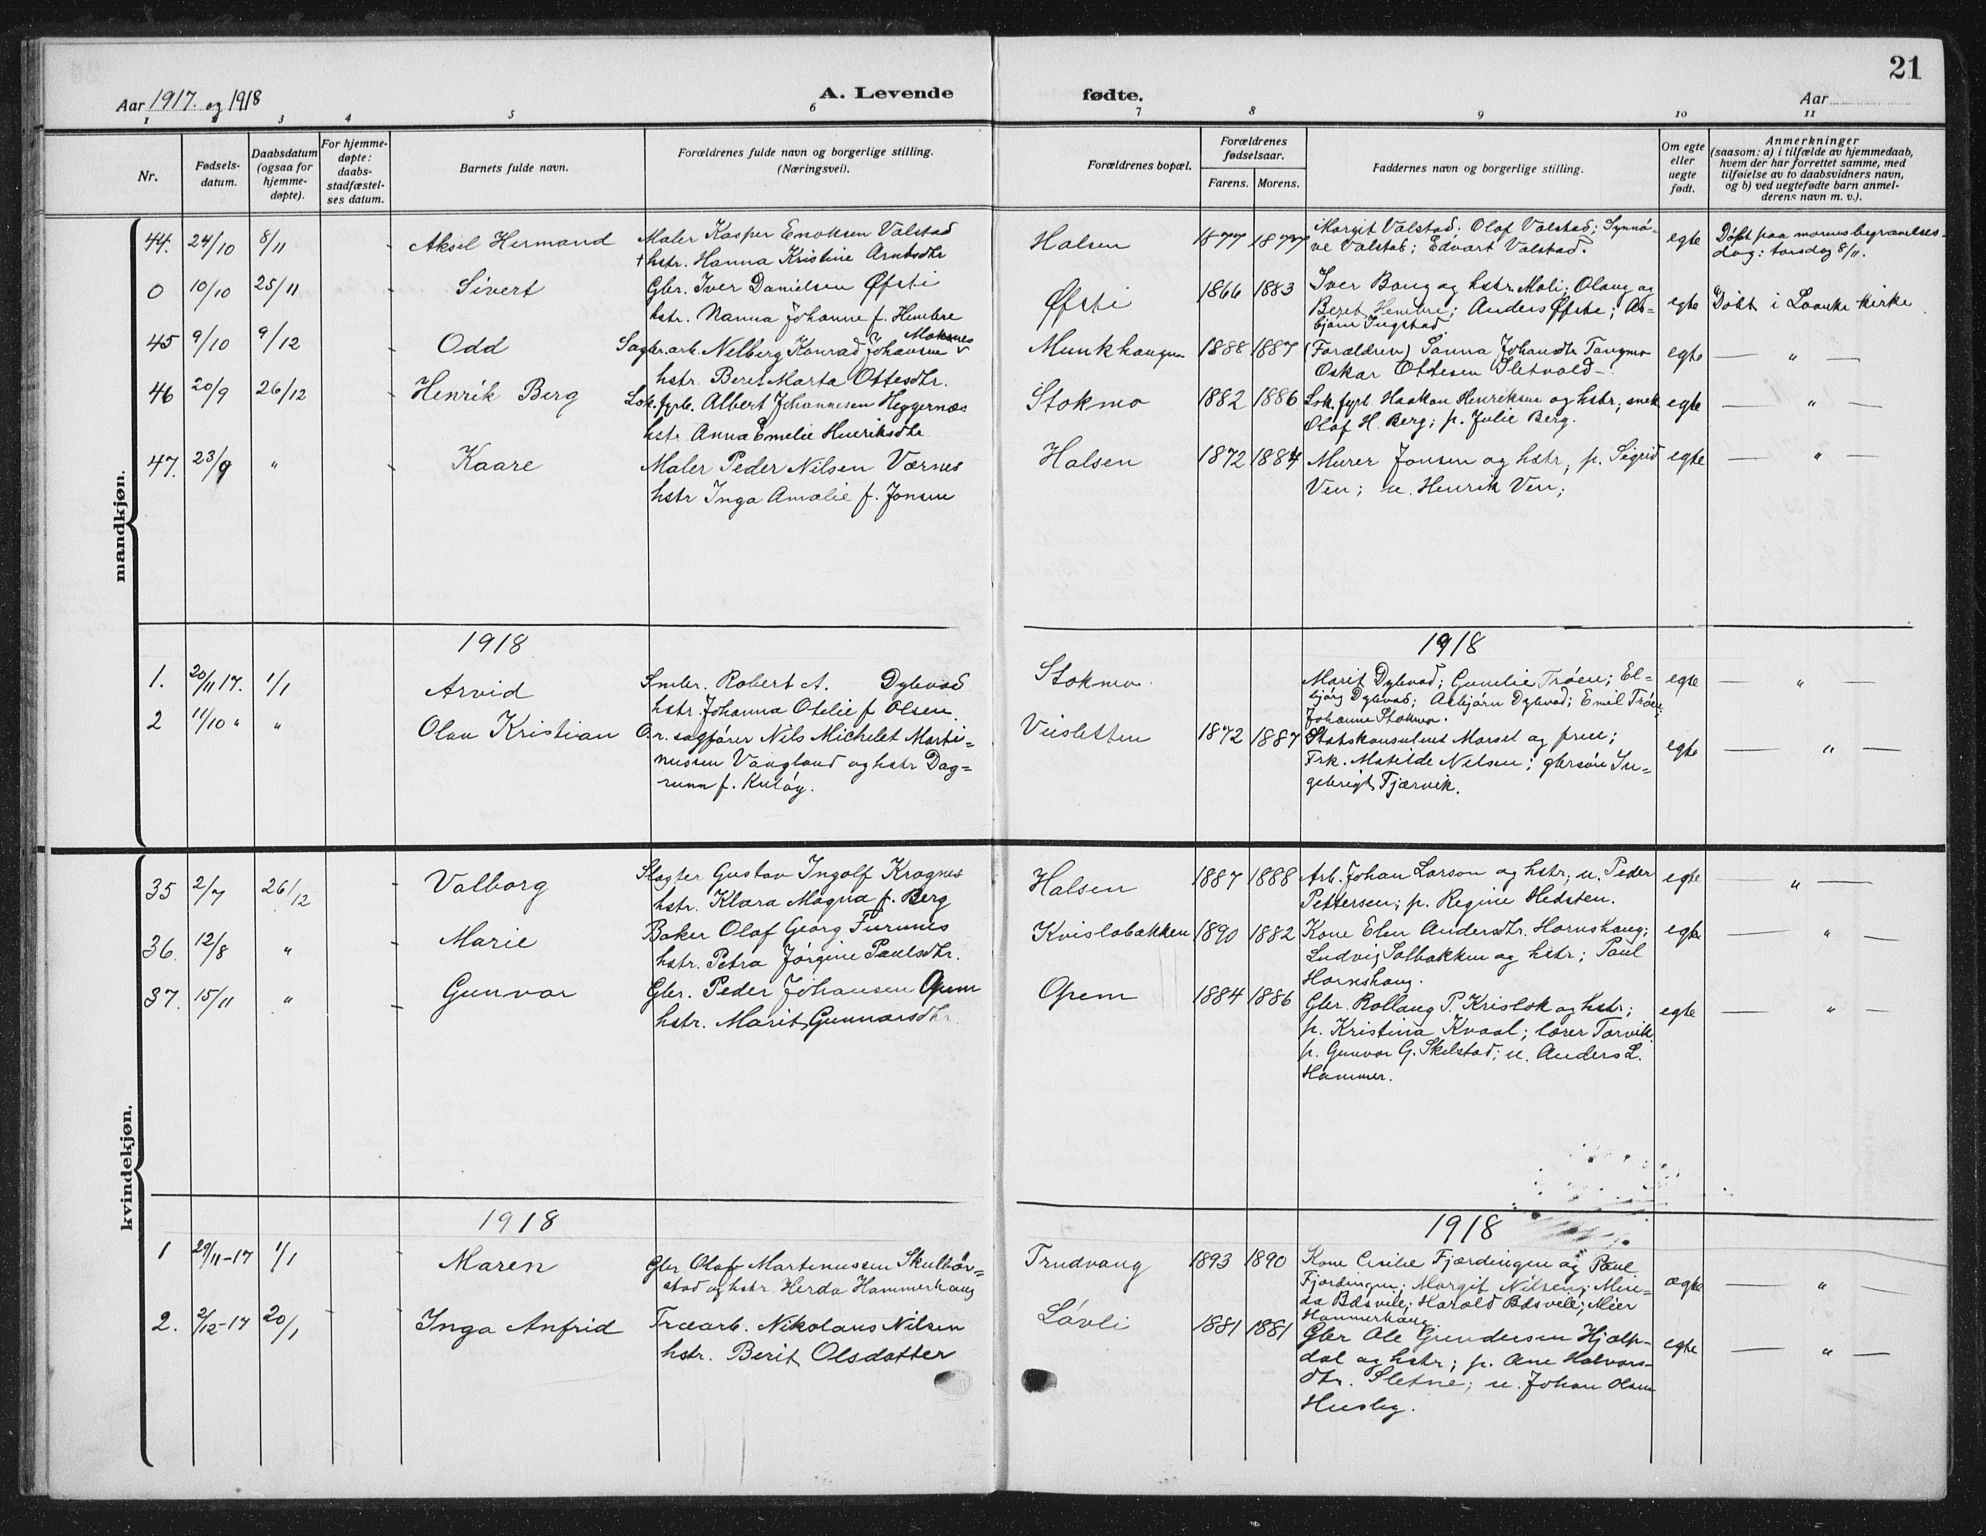 21
Aar 1917. og 1918
A. Levende fødte.
Aar
1 2 3 4 5 6 7 8 9 10 11
Nr.
Fødsels-
datum.
Daabsdatum
(ogsaa for
hjemme-
døpte).
For hjemme-
døpte:
daabs-
stadfæstel-
ses datum.
Barnets fulde navn.
Forældrenes fulde navn og borgerlige stilling.
(Næringsvei).
Forældrenes bopæl.
Forældrenes
fødselsaar.
Farens. Morens.
Faddernes navn og borgerlige stilling.
Om egte
eller
uegte
født.
Anmerkninger
(saasom: a) i tilfælde av hjemmedaab,
hvem der har forrettet samme, med
tilføielse av to daabsvidners navn,
og b) ved uegtefødte barn anmel-
derens navn m. v.).
mandkjøn.
44. 24/10 8/11 Aksel Hermand
Maler Kasper Enoksen Valstad
+ hstr. Hanna Kristine Arntsdtr
Halsen 1877 1877
Margit Valstad; Olaf Valstad; Synnø-
ve Valstad; Edvart Valstad.
egte
Døbt paa morens begravelses-
dag: torsdag 8/11.
0 10/10 25/11 Sivert
Gbr. Iver Danielsen Øfsti
hstr. Nanna Johanne f. Hembre
Øfsti 1866 1883
Iver Bang og hstr. Mali; Olaug og
Beret Hembre; Anders Øfste; As-
bjørn Ingstad.
egte Døbt i Laanke kirke
45 9/10 9/12 Odd
Sagbr. arb. Nelberg Konrad Johansen Moksnes
hstr. Beret Marta Ottesdtr.
Munkhaugen 1888 1887
(Forældren) Sanna Johansdtr Tangmo
Oskar Ottesen Sletvold
egte — " —
46 20/9 26/12 Henrik Berg
Lok.fyrb. Albert Johannesen Heggernæs
hstr. Anna Emelie Henriksdtr
Stokmo 1882 1886
Lok. fyrb Haakon Henriksen og hstr; snek
Olaf H. Berg; p. Julie Berg.
egte — " —
47. 23/9 " Kaare
Maler Peder Nilsen Værnes
hstr Inga Amalie f. Jonsen
Halsen 1872 1884
Murer Jonsen og hstr; p. Sigrid
Ven; u. Henrik Ven;
egte — " —
1918 1918
1. 20/11 17. 1/1 Arvid
Smbr. Robert A. Dybvad
hstr. Johanna Otelie f Olsen
Stokmo.
Marit Dybvad; Gunelie Trøen; El-
bjørg Dybvad; Asbjørn Dybvad; Emil Trøen;
Johanne Stokmo.
egte — " —
2 11/10 " " Olav Kristian
O.r. sagfører Nils Michelet Marti-
nussen Vaagland og hstr Dag-
runn f. Kuløy.
Veisletten 1872 1887
Statskonsulent Morset og frue;
Frk. Matilde Nilsen; gbrsøn In-
gebrigt Fjærvik.
egte — " —
kvindekjøn.
35 2/7 26/12 Valborg
Slagter Gustav Ingolf Kragnes
hstr. Klara Magna f. Berg
Halsen 1887 1888
Arb. Johan Larson og hstr; u. Peder
Pettersen; p. Regine Hedsten.
egte — " —
36. 12/8 " Marie
Baker Olaf Georg Furunes
hstr. Petra Jørgine Paulsdtr.
Kvislabakken 1890 1882
Kone Elen Andersdtr. Hornshaug;
Ludvig Solbakken og hstr; Paul
Hornshaug.
egte — " —
37. 15/11 " Gunvor
Gbr. Peder Johansen Opem
hstr. Marit Gunnarsdtr.
Opem 1884 1886
Gbr. Rollaug P. Krislok og hstr;
p. Kristina Kvaal; lærer Torvik
p. Gunvor G. Skelstad; u. Anders L.
Hammer.
egte — " —
1918 1918
1 29/11-17 1/1 Maren
Gbr Olaf Martinussen Skulbør-
stad og hstr. Herda Hammerhaug
Trudvang 1893 1890
Kone Cicilie Fjærdingen og Paul
Fjærdingen; Margit Nilsen; Min-
da Bdsvele; Harald Bdsvele; Meier
Hammerhaug.
ægte — " —
2. 2/12-17 20/1 Inga Anfrid
Træarb. Nikolaus Nilsen
hstr. Berit Olsdatter
Løvli 1881 1881
Gbr Ole Gundersen Hjelp-
dal og hstr; p. Ane Halvors-
dtr. Sletne; u. Johan Olsen
Husby.
egte — " —